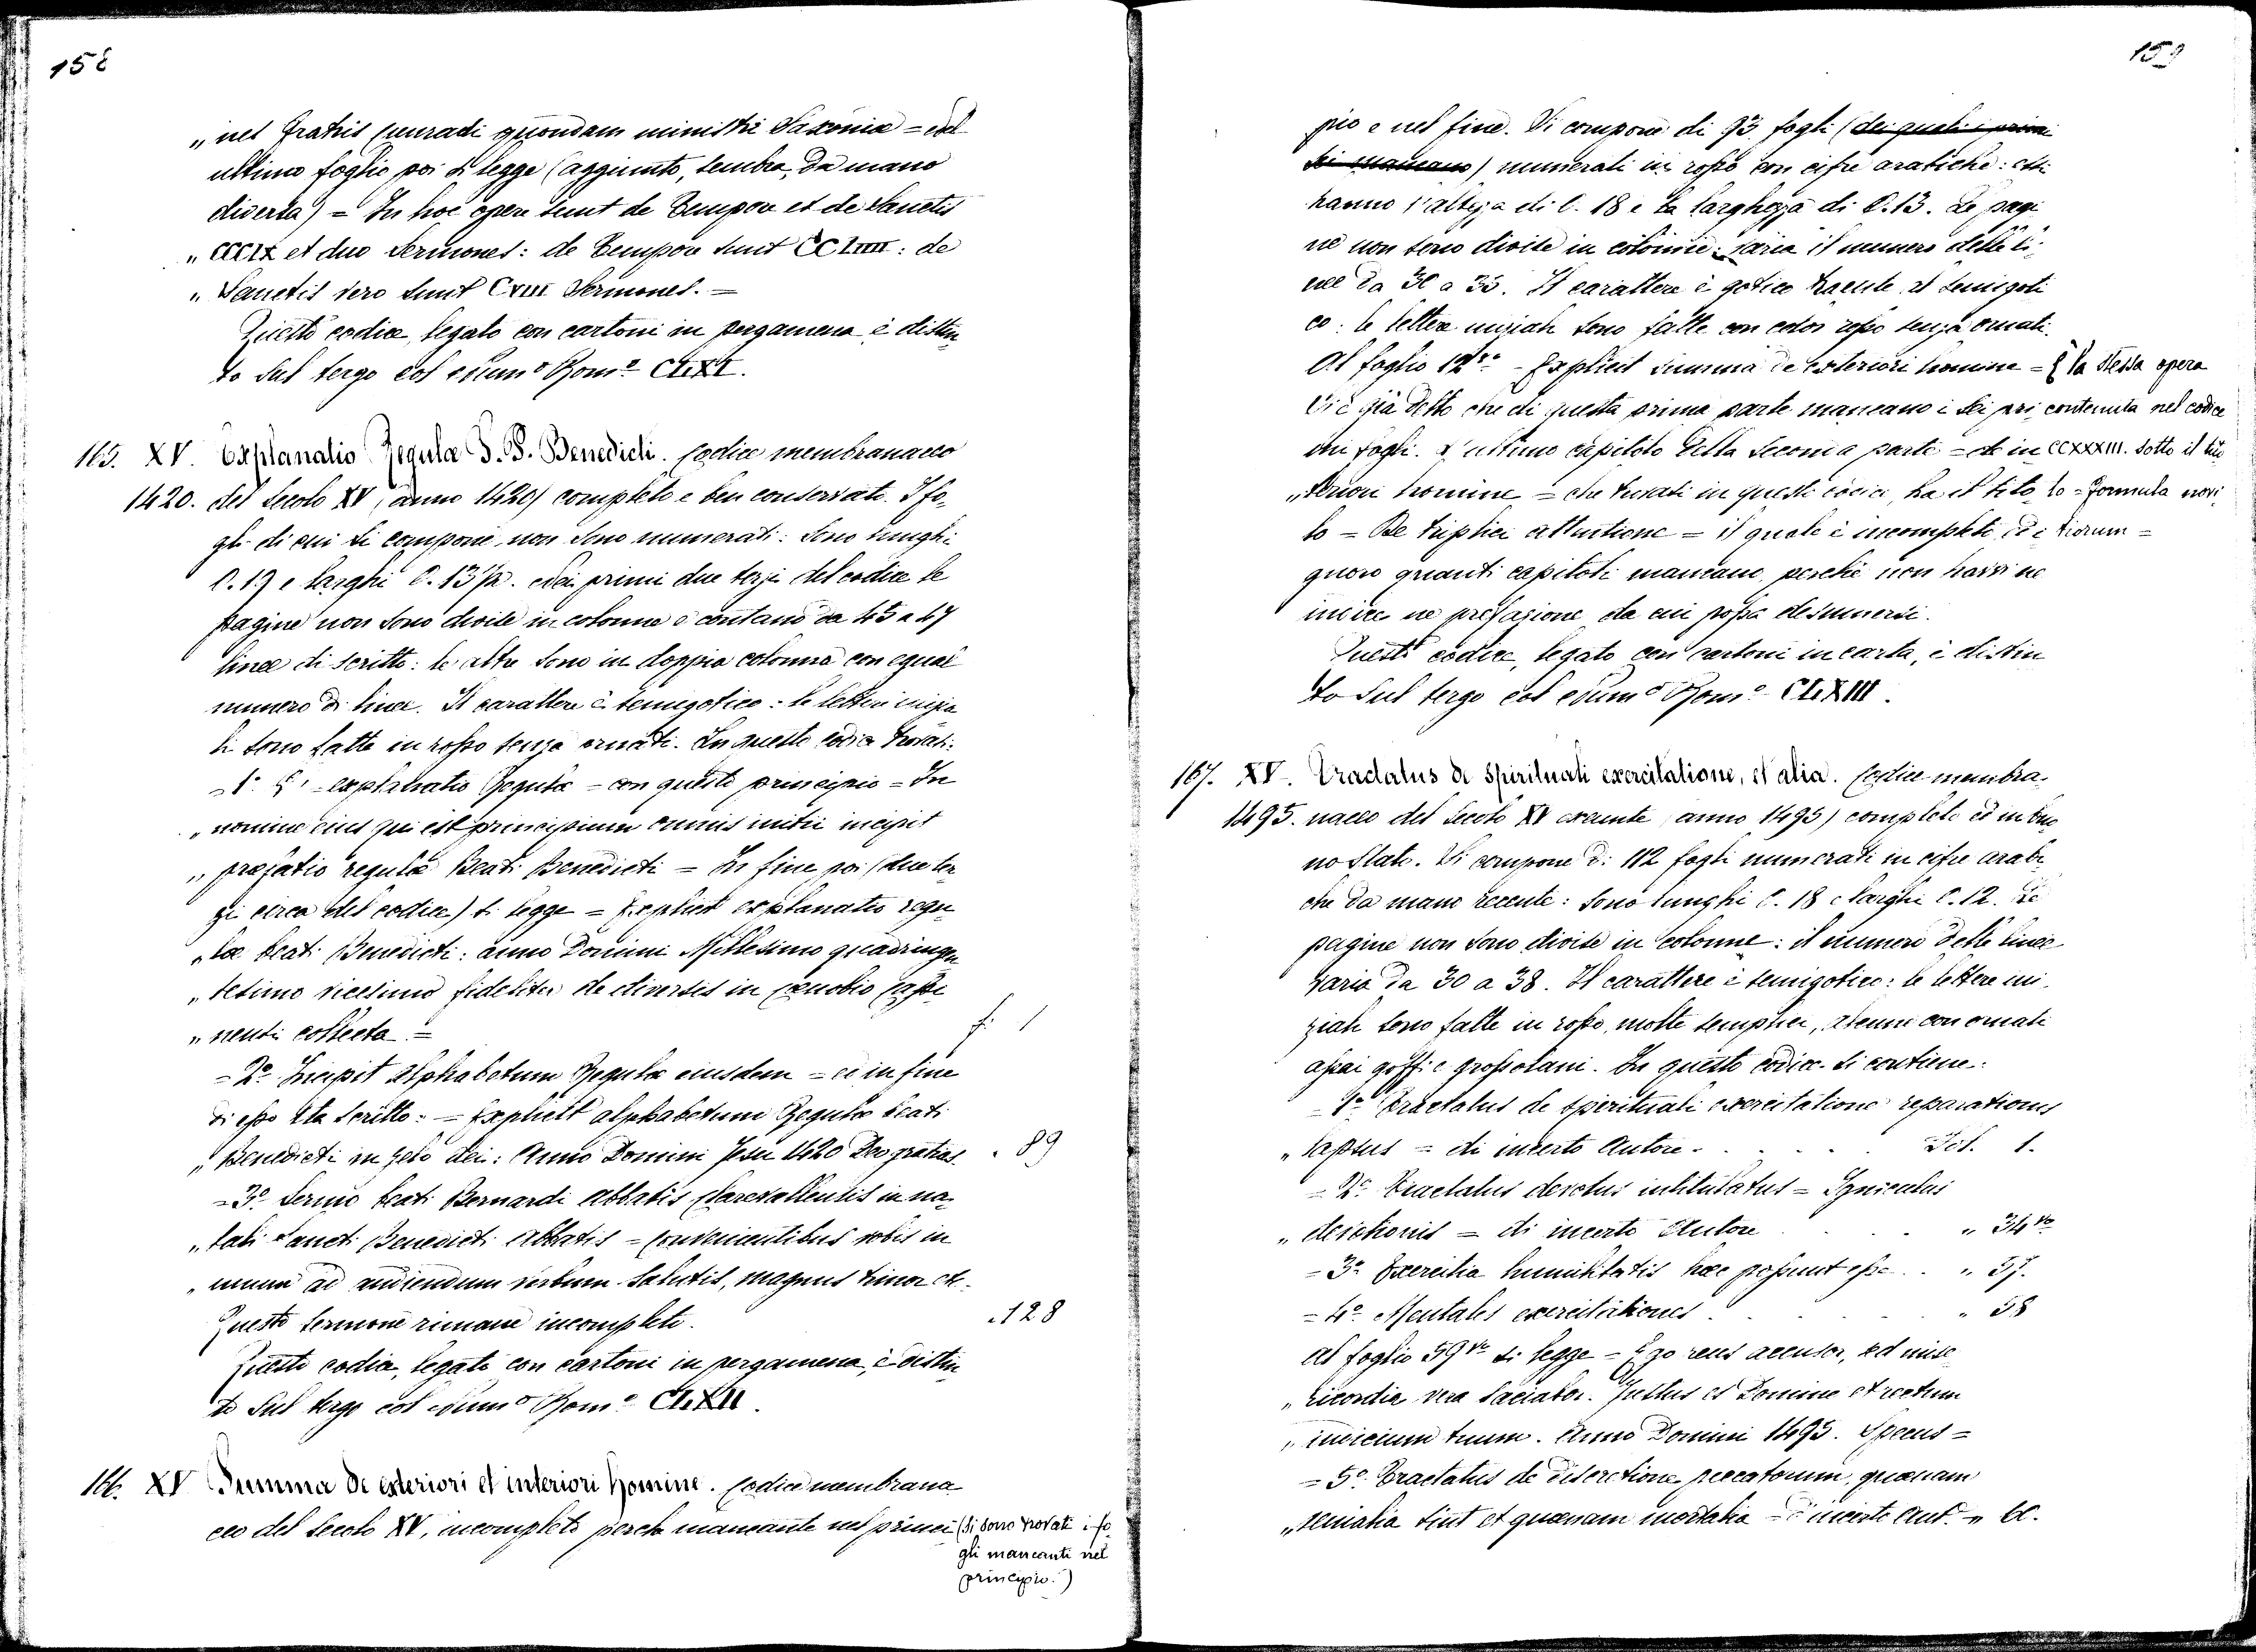 158
„nes Fratris Cunradi quondam ministri Saxoniæ = ed
ultimo foglio poi si legge (aggiunto, sembra, da mano
diversa) = In hoc opere sunt de Tempore et de Sanctis
„CCCLX et duo Sermones: de Tempore sunt CCLIIII: de
„Sanctis vero sunt CVIII Sermones. =
Questo codice, legato con cartoni in pergamena, è distin
to sul tergo col num.° Rom.° CLXI.
165. XV. Explanatio Regulæ S. P. Benedicti. Codice membranaceo
1420. del Secolo XV (anno 1420) completo e ben conservato. I fo¬
gli di cui si compone non sono numerati: sono lunghi
C. 19 e larghi C. 13 1/2. Nei primi due terzi del codice le
pagine non sono divise in colonne e contano da 45 a 47
linee di scritto: le altre sono in doppia colonna con egual
numero di linee. Il carattere è semigotico: le lettere inizia
li sono fatte in rosso senza ornati. In questo codice trovasi:
= 1.° = Explanatio Regulæ = con questo principio = In
„nomine ejus qui est principium omnis initii incipit
„præfatio regulæ Beati Benedicti = In fine poi (due ter
zi circa del codice) si legge = Explicit explanatio regu
„læ beati Benedicti: anno Domini Millesimo quadringen
„tesimo vicesimo fideliter de diversis in cænobio Casi
„nensi collecta = f. 1
= 2.° Incipit Alphabetum Regulæ eiusdem = ed in fine
di esso sta scritto: = Explicit alphabetum Regulæ beati
„Benedicti in zelo dei: Anno Domini Jesu 1420 Deo gratias. „ 89
= 3.° Sermo beati Bernardi abbatis Clarevallensis in na¬
„tali Sancti Benedicti Abbatis = convenientibus vobis in
„unum ad audiendum verbum Salutis, magnus timor etc.
Questo sermone rimane incompleto. „ 128
Questo codice, legato con cartoni in pergamena, è distin
to sul tergo col num.° Rom.° CLXII.
166. XV Summa de exteriori et interiori homine. Codice membrana
ceo del Secolo XV, incompleto perchè mancante nel princi (Si sono trovati i fo¬
gli mancanti nel
principio.)
159
pio e nel fine. Si compone di 93 fogli (dei quali i primi
sei mancano) numerati in rosso con cifre arabiche: essi
hanno l'altezza di C. 18 e la larghezza di C. 13. Le pagi
ne non sono divise in colonne: varia il numero delle li¬
nee da 30 a 35. Il carattere è gotico traente al semigoti
co: le lettere iniziali sono fatte con color rosso senza ornati.
Al foglio 12 - Explicit Summa de exteriori homine = È la stessa opera
Si è già detto che di questa prima parte mancano i sei pri contenuta nel codice
mi fogli. L'ultimo capitolo della seconda parte = de in CCXXXIII. sotto il tito
„teriori homine = che trovasi in questo codice, ha il tito lo = Formula novi
lo = De triplici attentione = il quale è incompleto, ed i tiorum =
gnoro quanti capitoli mancano, perchè non havvi nè
indice nè prefazione da cui possa desumersi.
Questo codice, legato con cartoni in carta, è distin
to sul tergo col num.° Rom.° CLXIII.
167. XV. Tractatus de spirituali exercitatione, et alia. Codice membra¬
1495. naceo del secolo XV exeunte (anno 1495) completo ed in buo
no stato. Si compone di 112 fogli numerati in cifre arabi
che da mano recente: sono lunghi C. 18 e larghi C. 12. Le
pagine non sono divise in colonne: il numero delle linee
varia da 30 a 38. Il carattere è semigotico: le lettere ini¬
ziali sono fatte in rosso, molte semplici, alcune con ornati
assai goffi e grossolani. In questo codice si contiene:
= 1.° Tractatus de spirituali exercitatione reparationis
„lapsus = di incerto Autore . . . . . Fol. 1.
= 2.° Tractatus devotus intitulatus = Igniculus
„devotionis = di incerto Autore . . . „ 34 vo
= 3.° Exercitia humilitatis hæc possunt esse . . „ 57.
= 4.° Mentales exercitationes . . . . . „ 58
Al foglio 59 vo si legge = Ego reus accusor, sed mise
„ricordia vera saciabor. Justus es Domine et rectum
„iudicium tuum. Anno Domini 1495. Specus =
= 5.° Tractatus de discretione peccatorum, quænam
„venialia sint et quænam mortalia = d'incerto Aut. „ 61.